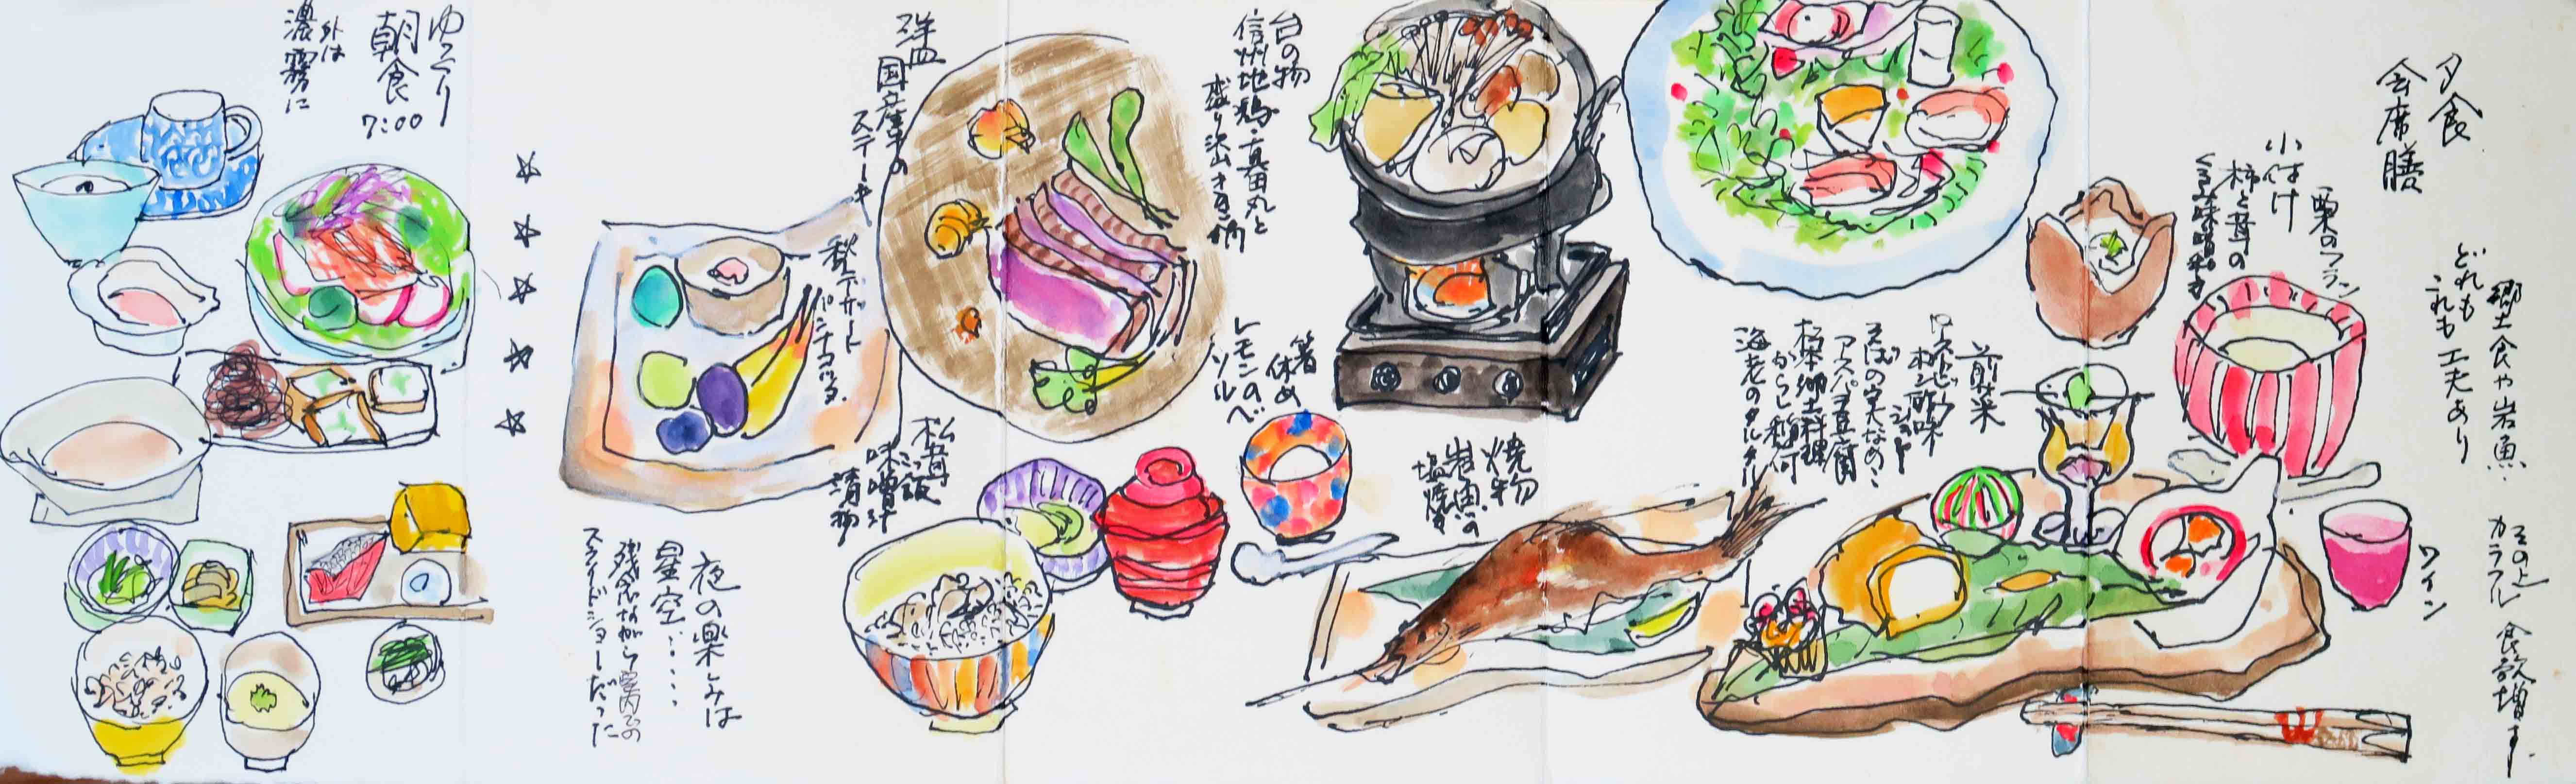 夕食
会席膳
郷土食や岩魚.
どれも
これも工夫あり
その上
カラフル 食欲増す.
小付け
栗のフラン
柿と茸の
くるみ味噌和え
ワイン
前菜
そばの実なめこ
アスパラ豆腐
郷土料理
からし稲荷
海老のタルタル
焼物
岩魚の
塩焼き
台の物
信州地鶏・真田丸と
盛り沢山すき鍋
箸休め
レモンのソルベ
洋皿
国産牛の
ステーキ
松茸
ご飯
味噌汁
漬物
秋デザート
パンナコッタ.
夜の楽しみは
星空……
残念ながら室内での
スライドショーだった
ゆっくり
朝食
7:00
外は
濃霧に